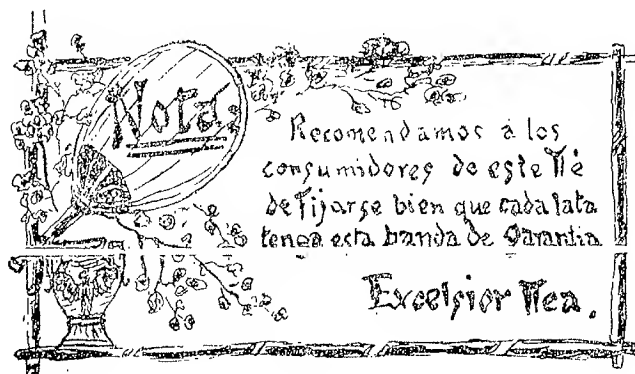 Nota.
Recomendamos á los
consumidores de este Té
de fijarse bien que cada lata
tenga esta banda de Garantia
Excelsior Tea.